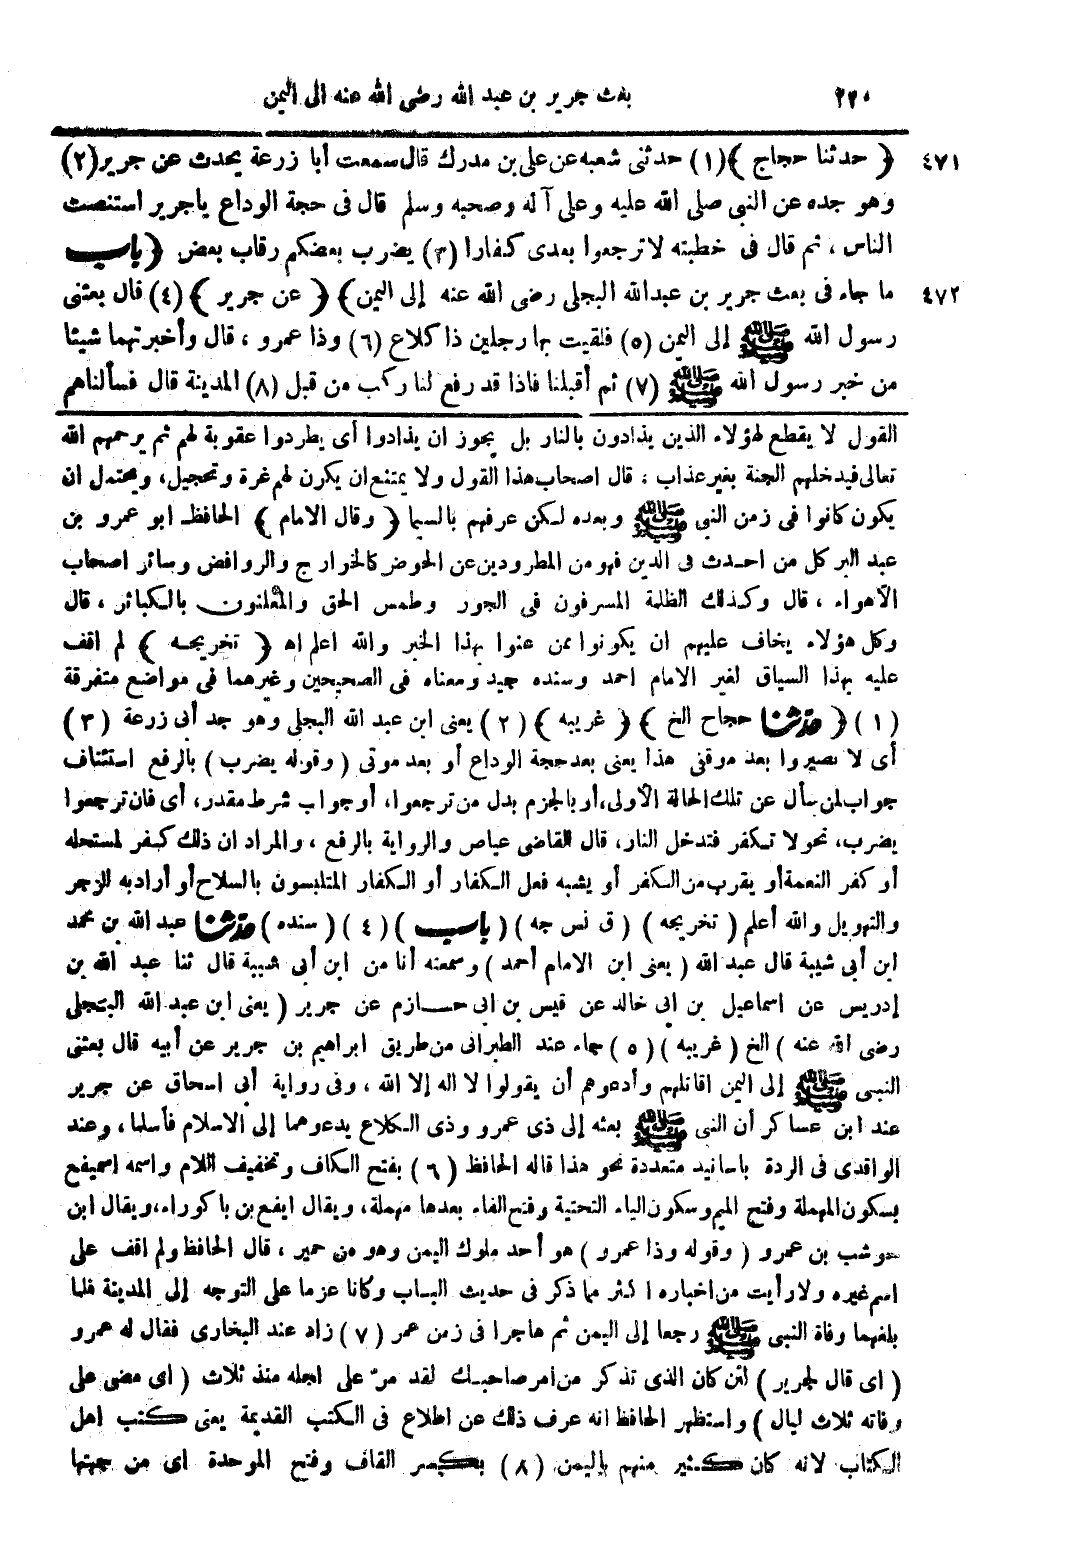 ٢٢٠ بعث جرير بن عبد الله رضى الله عنه الى اليمن
٤٧١ ﴿ حدثنا حجاج ﴾(١) حدثنى شعبه عن على بن مدرك قال سمعت أبا زرعة يحدث عن جرير(٢)
وهو جده عن النبى صلى الله عليه وعلى آله وصحبه وسلم قال فى حجة الوداع ياجرير استنصت
الناس ، ثم قال فى خطبته لا ترجعوا بعدى كفارا (٣) يضرب بعضكم رقاب بعض ﴿ باب
٤٧٢ ما جاء فى بعث جرير بن عبدالله البجلى رضى الله عنه إلى اليمن﴾ ﴿ عن جرير ﴾(٤) قال بعثنى
رسول الله ﷺ إلى اليمن (٥) فلقيت بها رجلين ذا كلاع (٦) وذا عمرو ، قال وأخبرتهما شيئا
من خبر رسول الله ﷺ (٧) ثم أقبلنا فاذا قد رفع لنا ركب من قبل (٨) المدينة قال فسألناهم
القول لا يقطع لهؤلاء الذين يذادون بالنار بل يجوز ان يذادوا أى يطردوا عقوبة لهم ثم يرحمهم الله
تعالى فيدخلهم الجنة بغير عذاب ، قال اصحاب هذا القول ولا يمتنع ان يكون لهم غرة وتحجيل، ويحتمل ان
يكون كانوا فى زمن النبى ﷺ وبعده لكن عرفهم بالسيما ﴿ وقال الامام ﴾ الحافظ ابو عمرو بن
عبد البر كل من احدث فى الدين فهو من المطرودين عن الحوض كالخوارج والروافض وسائر اصحاب
الاهواء ، قال وكذلك الظلمة المسرفون فى الجور وطمس الحق والمعلنون بالكبائر ، قال
وكل هؤلاء يخاف عليهم ان يكونوا ممن عنوا بهذا الخبر والله اعلم اه ﴿ تخريجه ﴾ لم اقف
عليه بهذا السياق لغير الامام احمد وسنده جيد ومعناه فى الصحيحين وغيرهما فى مواضع متفرقة
(١) ﴿ حدثنا حجاج الخ ﴾ ﴿ غريبه ﴾ (٢) يعنى ابن عبد الله البجلى وهو جد أبى زرعة (٣)
أى لا تصيروا بعد موقفى هذا يعنى بعد حجة الوداع أو بعد موتى ( وقوله يضرب ) بالرفع استئناف
جواب لمن سأل عن تلك الحالة الأولى، أو بالجزم بدل من ترجعوا، أو جواب شرط مقدر، أى فان ترجعوا
يضرب، نحو لا تكفر فتدخل النار، قال القاضى عياض والرواية بالرفع ، والمراد ان ذلك كفر لمستحله
أو كفر النعمة أو يقرب من الكفر أو يشبه فعل الكفار أو الكفار المتلبسون بالسلاح أو أراد به الزجر
والتهويل والله أعلم ( تخريجه ) ( ق نس جه ) ( باب ) (٤) ( سنده ) حدثنا عبد الله بن محمد
ابن أبى شيبة قال عبد الله ( يعنى ابن الامام أحمد ) وسمعته أنا من ابن أبى شيبة قال ثنا عبد الله بن
إدريس عن اسماعيل بن ابى خالد عن قيس بن ابى حازم عن جرير ( يعنى ابن عبد الله البجلى
رضى الله عنه ) الخ ( غريبه ) (٥) جاء عند الطبرانى من طريق ابراهيم بن جرير عن أبيه قال بعثنى
النبى ﷺ إلى اليمن اقاتلهم وأدعوهم أن يقولوا لا اله إلا الله ، وفى رواية أبى اسحاق عن جرير
عند ابن عساكر أن النبى ﷺ بعثه إلى ذى عمرو وذى الكلاع يدعوهما إلى الاسلام فأسلما ، وعند
الواقدى فى الردة باسانيد متعددة نحو هذا قاله الحافظ (٦) بفتح الكاف وتخفيف اللام واسمه اسميفع
بسكون المهملة وفتح الميم وسكون الياء التحتية وفتح الفاء بعدها مهملة، ويقال ايفع بن باكوراء، ويقال ابن
حوشب بن عمرو ( وقوله وذا عمرو ) هو أحد ملوك اليمن وهو من حمير ، قال الحافظ ولم اقف على
اسم غيره ولا رأيت من اخباره اكثر مما ذكر فى حديث الباب وكانا عزما على التوجه إلى المدينة فلما
بلغهما وفاة النبى ﷺ رجعا إلى اليمن ثم هاجرا فى زمن عمر (٧) زاد عند البخارى فقال له عمرو
( اى قال لجرير ) لئن كان الذى تذكر من امر صاحبك لقد مرّ على اجله منذ ثلاث ( اى مضى على
وفاته ثلاث ليال ) واستظهر الحافظ انه عرف ذلك عن اطلاع فى الكتب القديمة يعنى كتب اهل
الكتاب لانه كان كثير منهم باليمن (٨) بكسر القاف وفتح الموحدة اى من جهتها